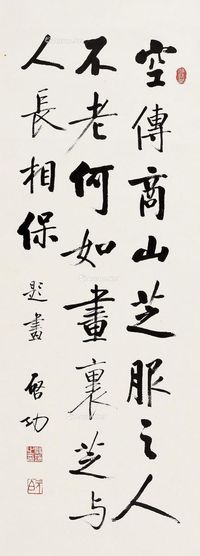 空傳商山芝服之人
不老何如畫裏芝与
人長相保
題畫
啓功